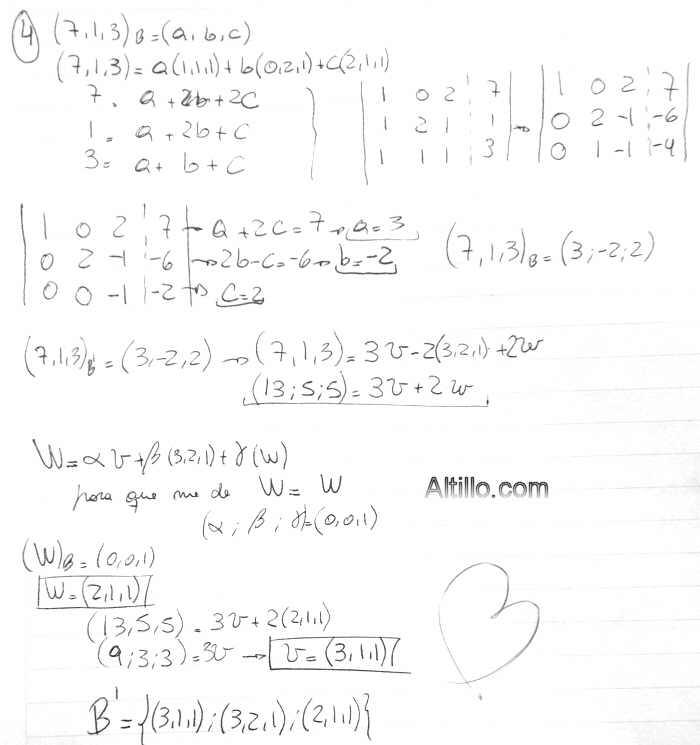 4 (7,1,3)B=(a,b,c)
(7,1,3)=a(1,1,1)+b(0,2,1)+c(2,1,1)
7 = a + 2b + 2c
1 = a + 2b + c
3 = a + b + c
1 0 2 | 7 → 1 0 2 | 7
1 2 1 | 1 0 2 -1 | -6
1 1 1 | 3 0 1 -1 | -4
1 0 2 | 7 → a + 2c = 7 → a = 3
0 2 -1 | -6 → 2b - c = -6 → b = -2
0 0 -1 | -2 → c = 2
(7,1,3)B = (3;-2;2)
(7,1,3)B' = (3,-2,2) → (7,1,3) = 3v - 2(3,2,1) + 2w
(13;5;5) = 3v + 2w
W = αv + β(3,2,1) + γ(w)
para que me de W = W
(α; β; γ) = (0,0,1)
Altillo.com
(W)B = (0,0,1)
W = (2,1,1)
(13,5,5) = 3v + 2(2,1,1)
(9;3;3) = 3v → v = (3,1,1)
B' = {(3,1,1);(3,2,1);(2,1,1)}